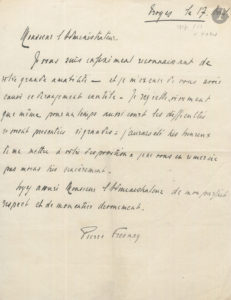 Troyes le 17
Monsieur l'Administrateur
Je vous suis infiniment reconnaissant de
votre grande amabilité – et je m'excuse de vous avoir
causé ce dérangement inutile – Je regrette vivement
que même pour un temps aussi court les difficultés
se soient présentées si grandes : j'aurais été très heureux
de me mettre à votre disposition – je ne vous en remercie
pas moins très sincèrement.
Soyez assuré Monsieur l'Administrateur de mon profond
respect et de mon entier dévouement.
Pierre Fresnay